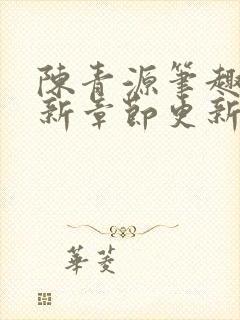 陳青源筆趣
新章節更新
華菱